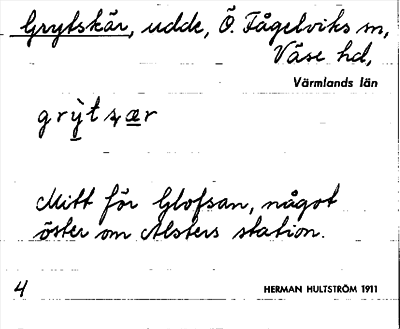 Grytskär, udde, Ö. Fågelviks sn,
Väse hd,
Värmlands län
Mitt för Glofsan, något
öster om Alsters station.
4 HERMAN HULTSTRÖM 1911